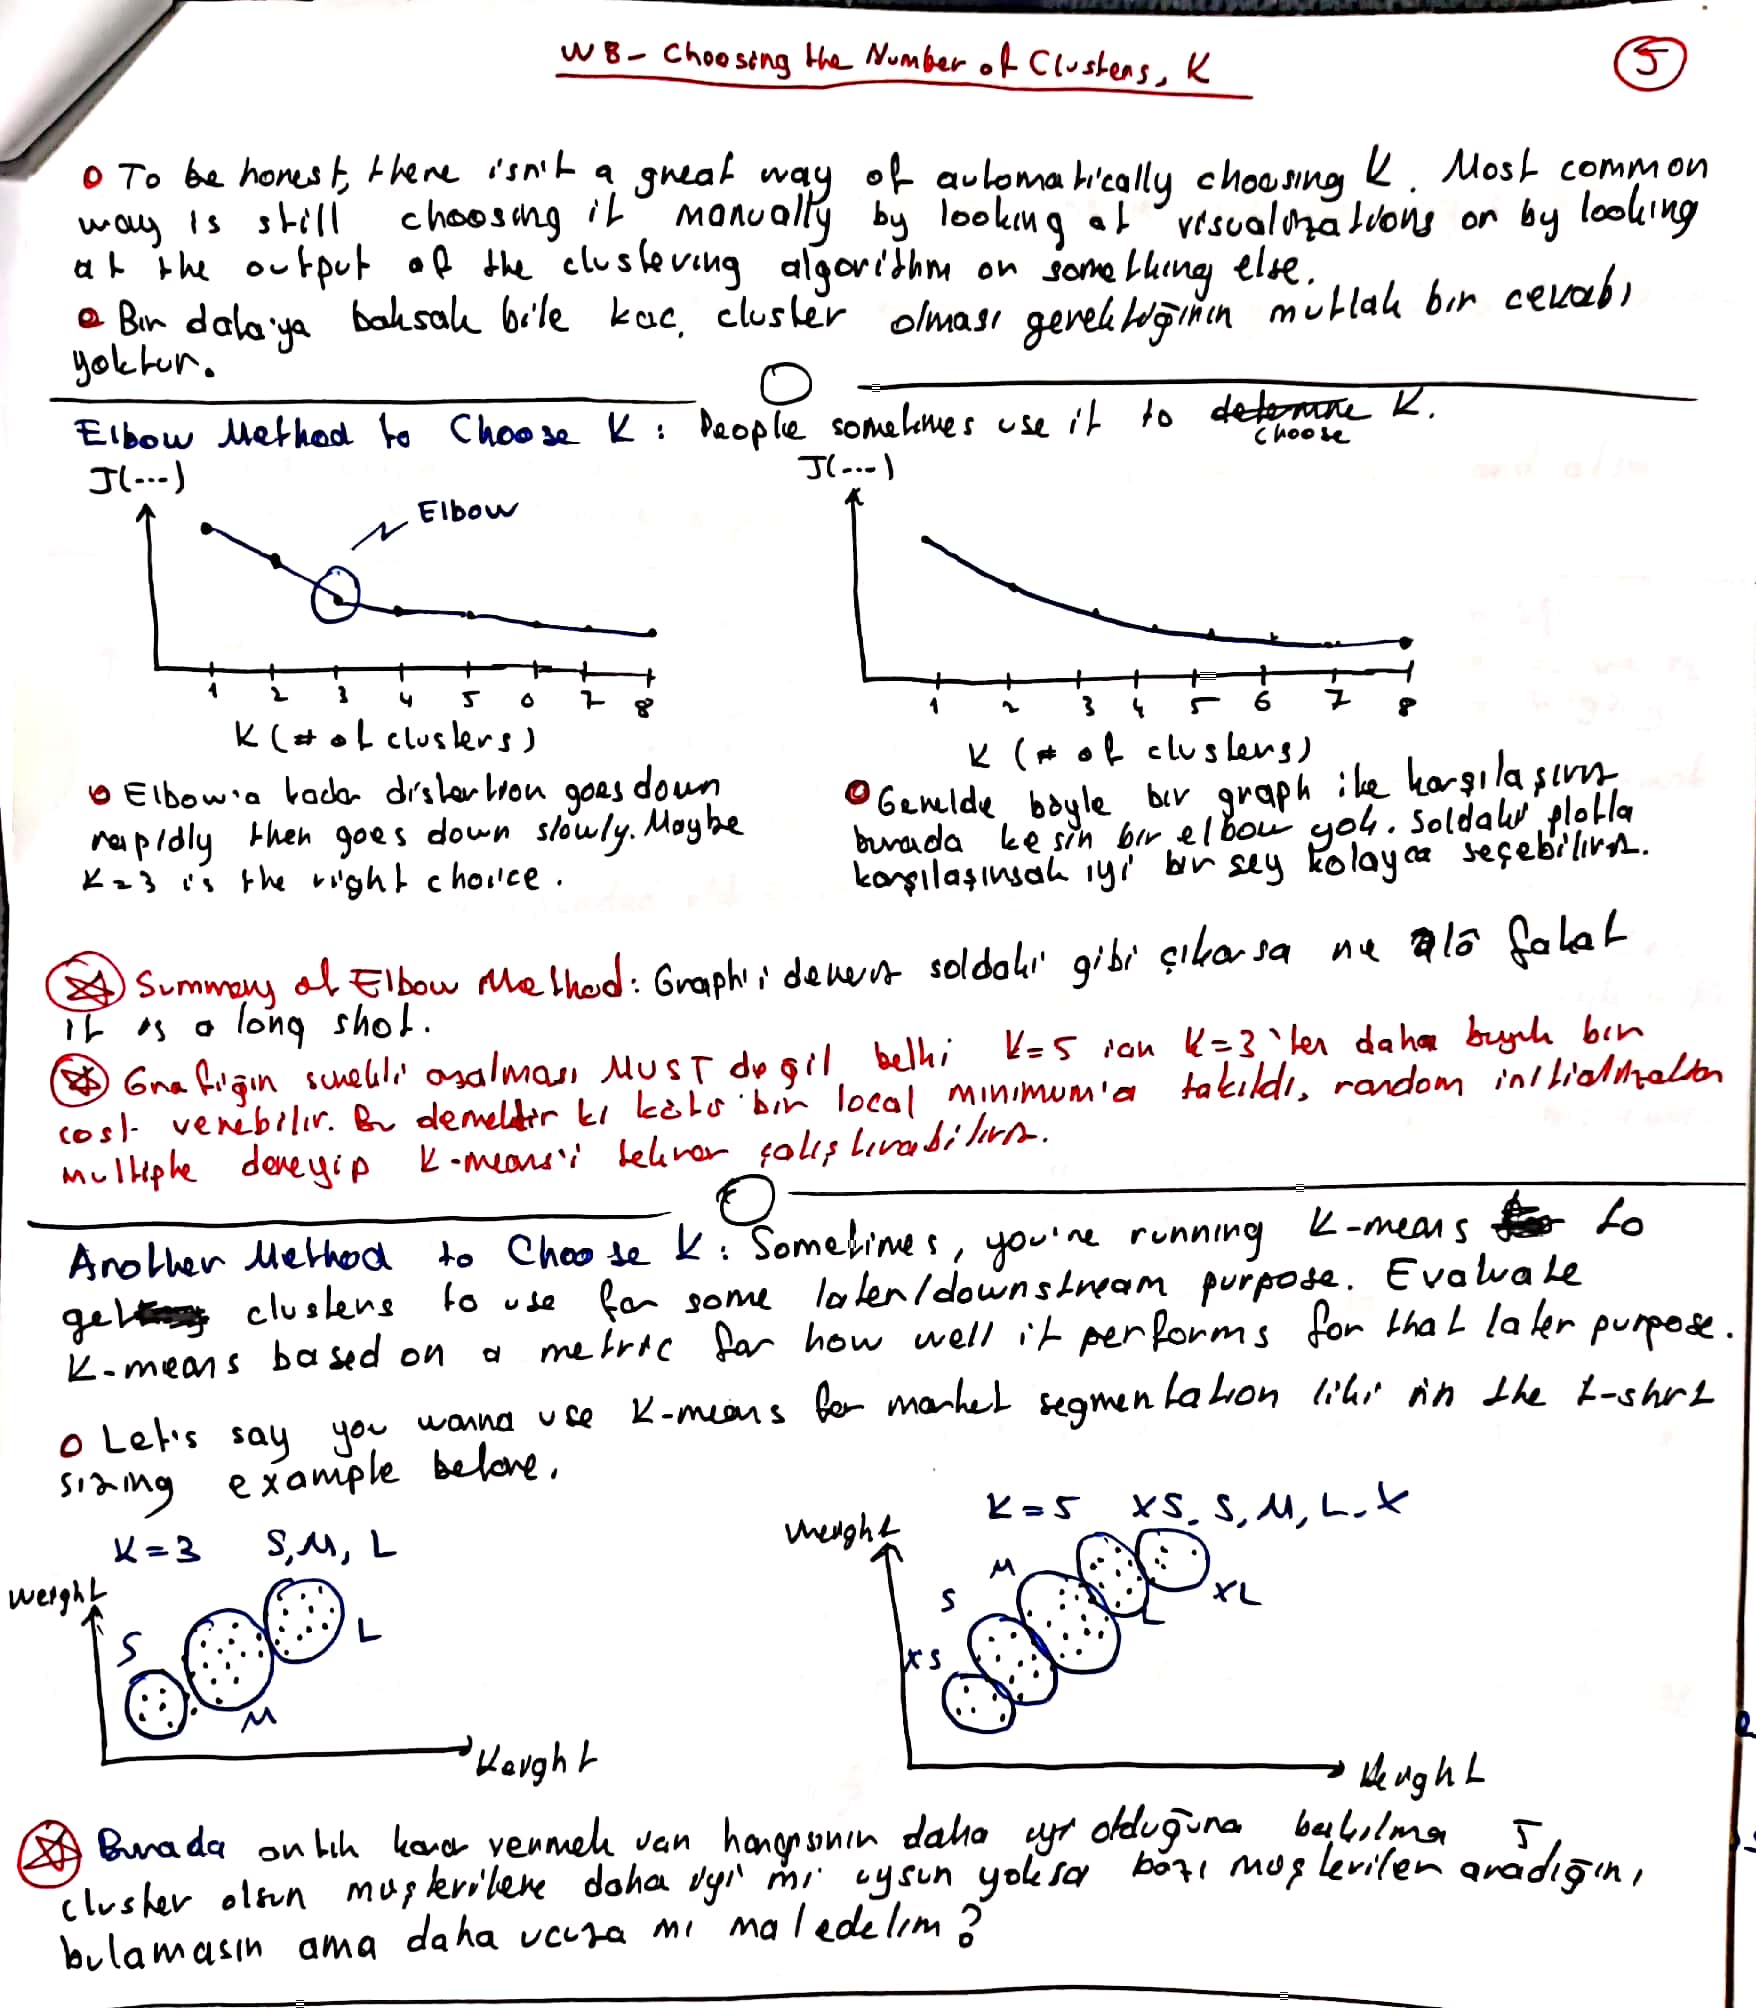 W8 - Choosing the Number of Clusters, K
5
To be honest, there isn't a great way of automatically choosing K. Most common
way is still choosing it manually by looking at visualizations or by looking
at the output of the clustering algorithm on something else.
Bir data'ya baksak bile kaç cluster olması gerektiğinin mutlak bir cevabı
yoktur.
Elbow Method to Choose K: People sometimes use it to determine K.
choose
J(...)
Elbow
1 2 3 4 5 6 7 8
K (# of clusters)
J(...)
1 2 3 4 5 6 7 8
K (# of clusters)
Elbow'a kadar distortion goes down
rapidly then goes down slowly. Maybe
K=3 is the right choice.
Genelde böyle bir graph ile karşılaşırız
burada kesin bir elbow yok. Soldaki plotla
karşılaşırsak iyi bir şey kolayca seçebiliriz.
Summary of Elbow Method: Graph'ı deneriz soldaki gibi çıkarsa ne âlâ fakat
it is a long shot.
Grafiğin sürekli azalması MUST değil belki K=5 için K=3'ten daha büyük bir
cost verebilir. Bu demektir ki kötü bir local minimum'a takıldı, random initialization
multiple deneyip K-means'i tekrar çalıştırabiliriz.
Another Method to Choose K: Sometimes, you're running K-means to
get clusters to use for some later/downstream purpose. Evaluate
K-means based on a metric for how well it performs for that later purpose.
Let's say you wanna use K-means for market segmentation like in the t-shirt
sizing example before.
K=3 S, M, L
Weight
S
M
L
Height
K=5 XS, S, M, L, X
Weight
XS
S
M
L
XL
Height
Burada artık karar vermek var hangisinin daha iyi olduğuna bakılmalı 5
cluster olsun müşterilere daha iyi mi uysun yoksa bazı müşteriler aradığını
bulamasın ama daha ucuza mı mal edelim?